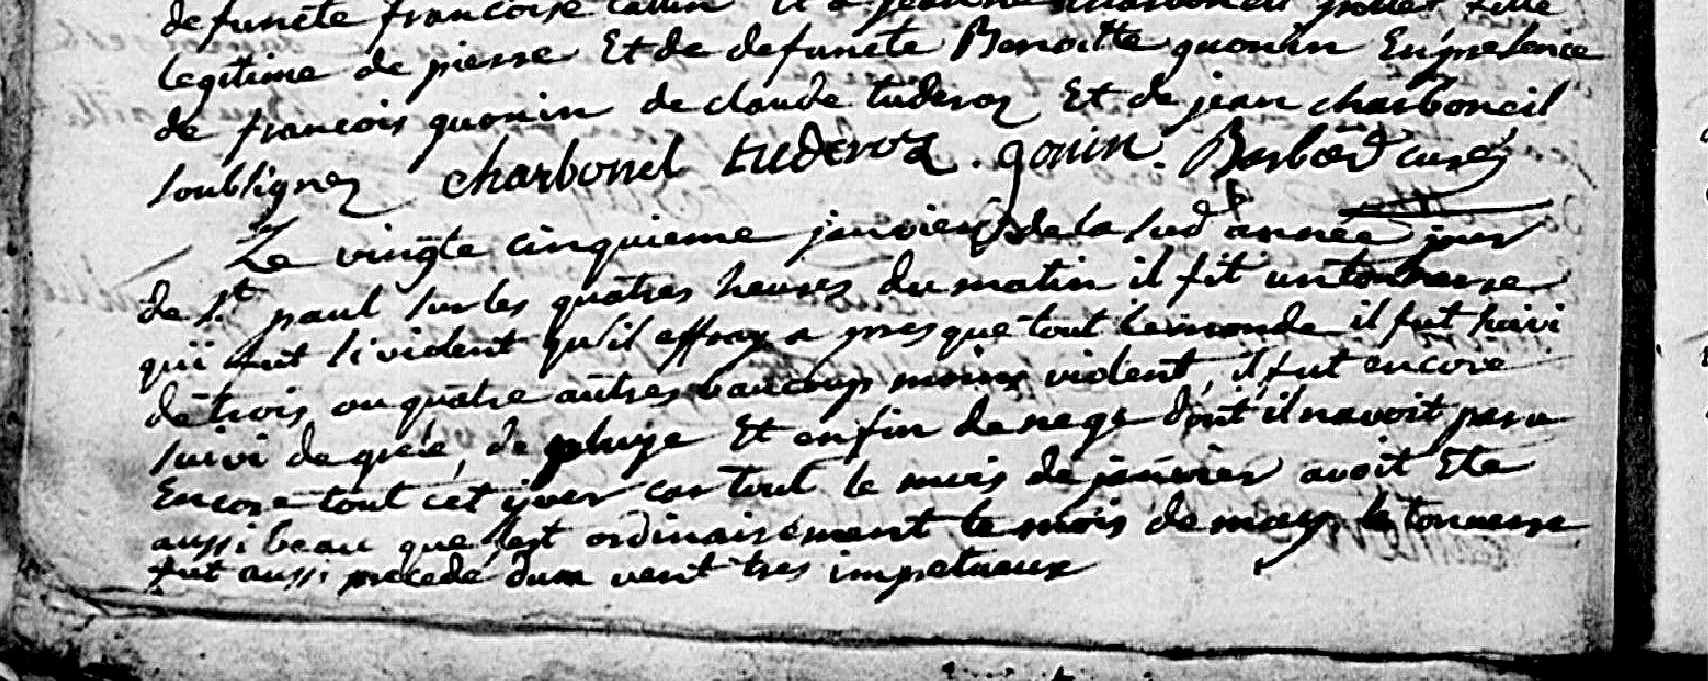 defuncte francoise
legitime de pierre Et de defuncte Benoitte quonin En presence
de francois quonin de claude tuderoz Et de jean charboneil
soubsignez charbonel tuderoz . gonin . Barbœd curez
Le vingte cinquieme janvier de la sud année jour
de St paul sur les quatres heures du matin il fit un tonnerre
qui fut si violent qu'il effraya presque tout le monde il fut suivi
de trois ou quatre autres baucoup moins violent, il fut encore
suivi de grele, de pluye Et enfin de nege dont il navoit paru
Encore tout cet yver car tout le mois de janvier avoit Ete
aussi beau que lest ordinairement le mois de may, le tonnerre
fut aussi precedé dum vent tres impetueux